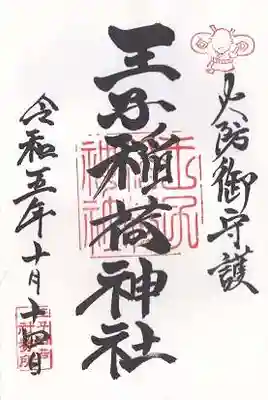 火防御守護
王子稲荷神社
令和五年十月十四日